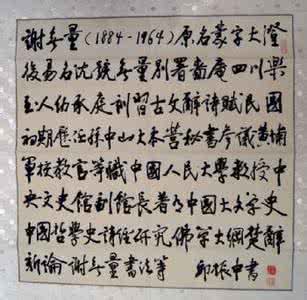 謝無量(1884-1964)原名蒙字大澄
後易名沈號無量別署嗇庵四川樂
至人幼承庭訓習古文辭詩賦民國
初期歷任孫中山大本營秘書參議黃埔
軍校教官等職中國人民大學教授中
央文史館副館長著有中國大文學史
中國哲學史詩經研究佛學大綱楚辭
新論謝無量書法等 邱振中書